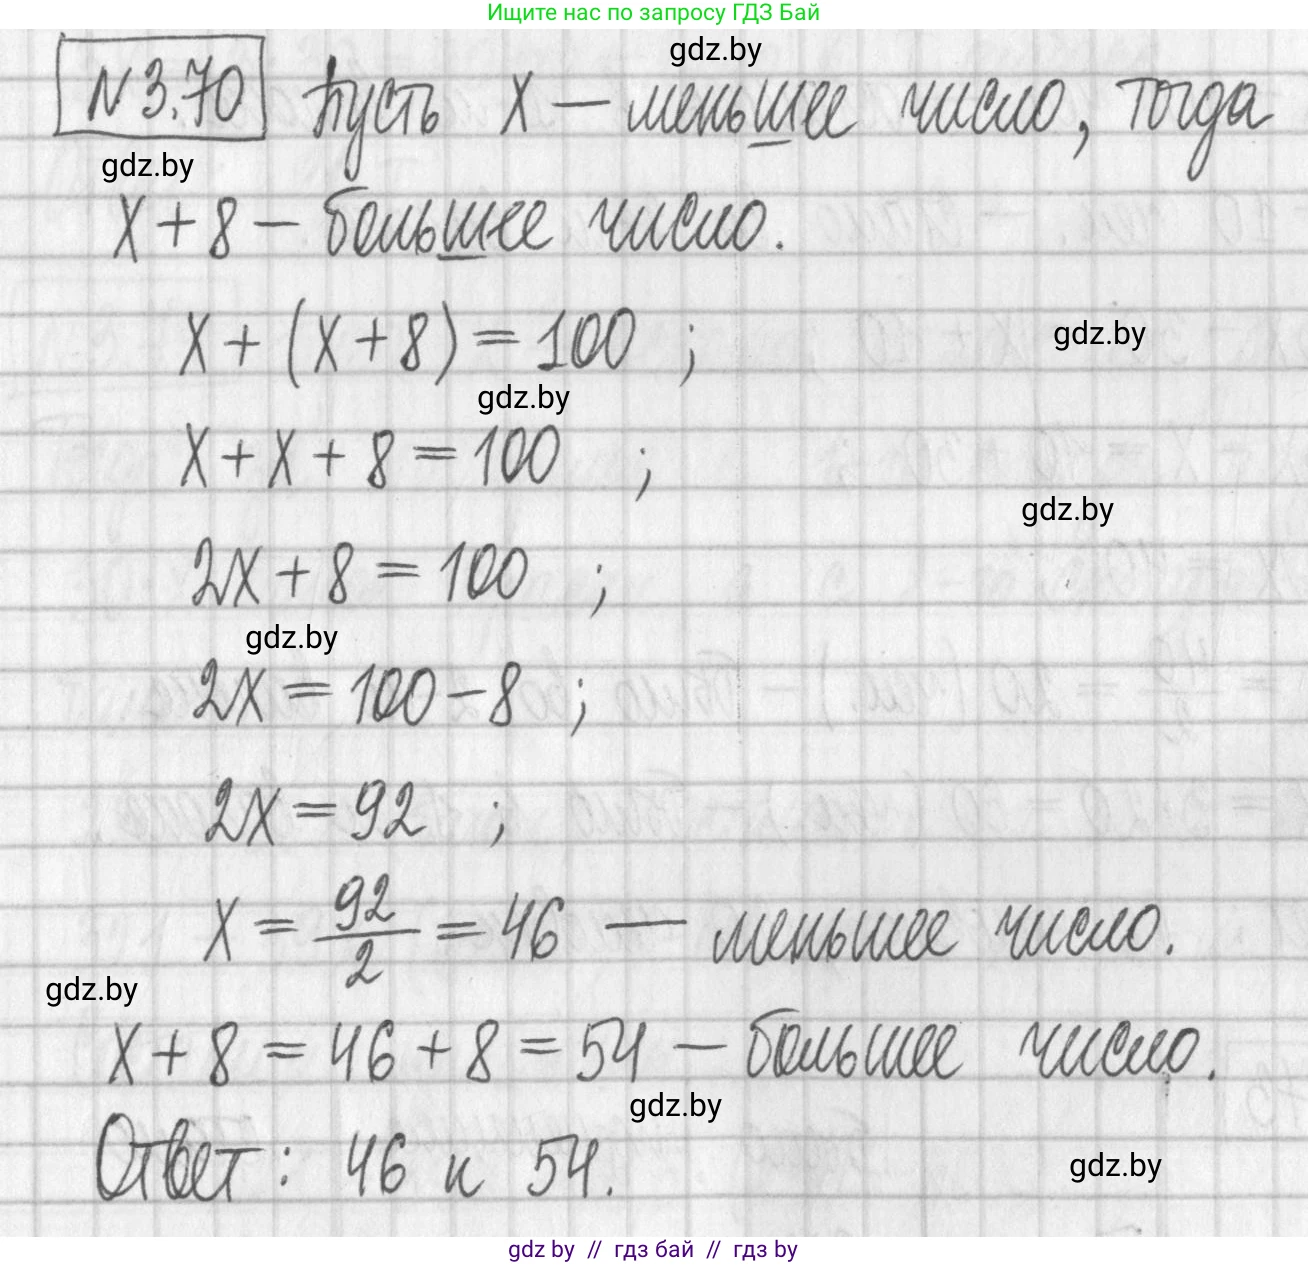 Ищите нас по запросу ГДЗ Бай
gdz.by
№3.70 Пусть x — меньшее число, тогда
gdz.by
x + 8 — большее число.
x + (x + 8) = 100 ;
gdz.by
gdz.by
x + x + 8 = 100 ;
gdz.by
2x + 8 = 100 ;
gdz.by
2x = 100 - 8 ;
2x = 92 ;
x = 92/2 = 46 — меньшее число.
gdz.by
x + 8 = 46 + 8 = 54 — большее число.
gdz.by
Ответ: 46 и 54.
gdz.by
gdz by // гдз бай // гдз by